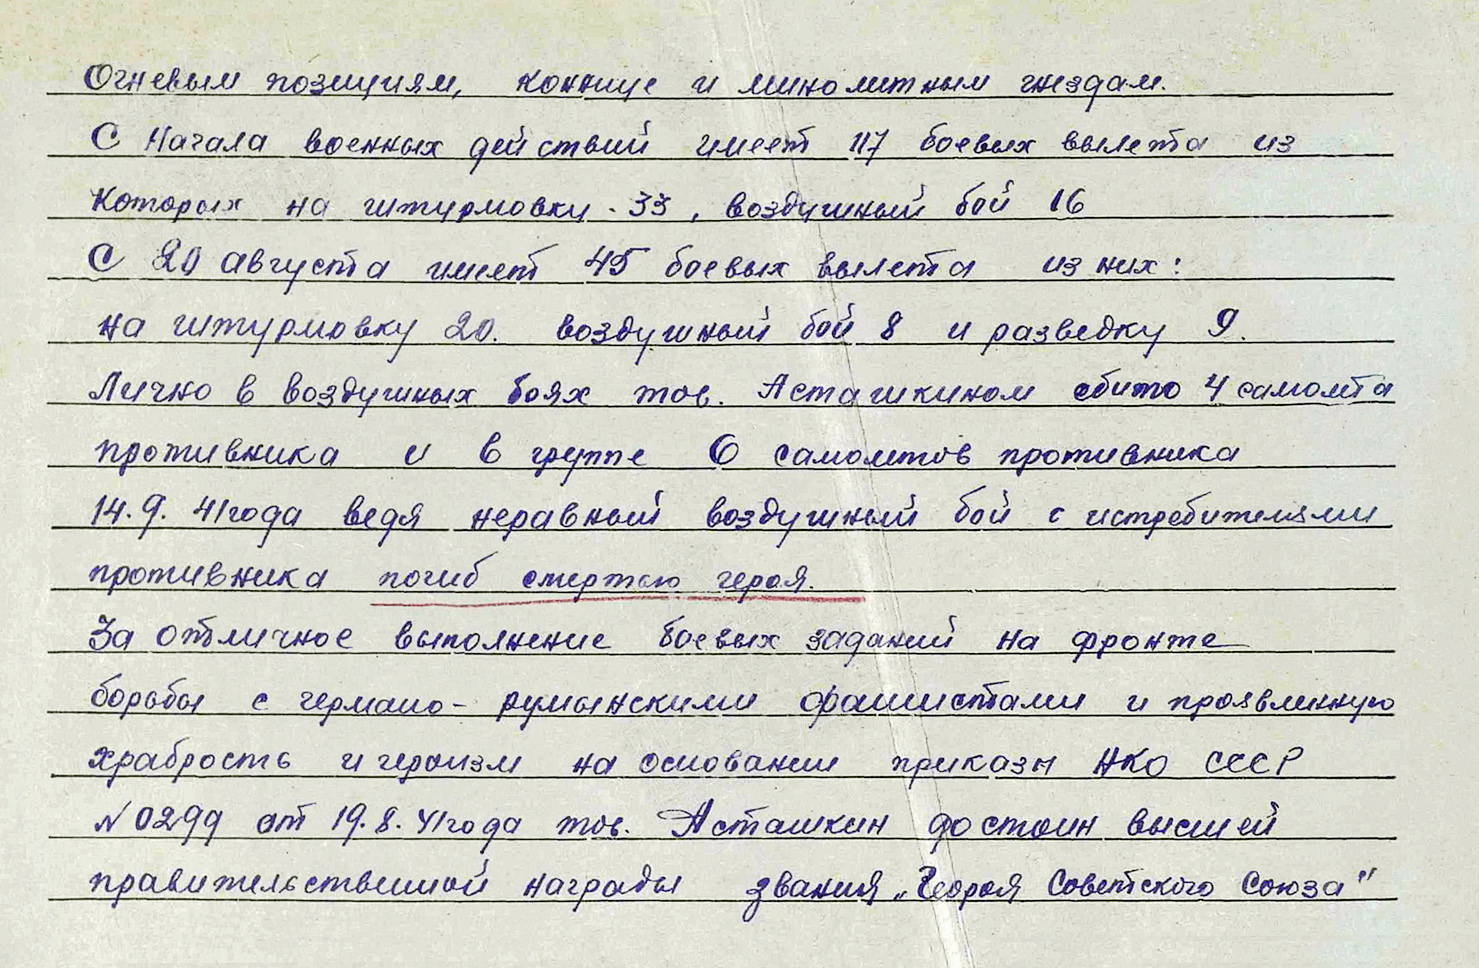 Огневым позициям, коннице и минометным гнездам.
С Начала военных действий имеет 117 боевых вылета из
которых на штурмовку - 33, воздушный бой 16
С 20 августа имеет 45 боевых вылета из них:
на штурмовку 20. воздушный бой 8 и разведку 9.
Лично в воздушных боях тов. Асташкином сбито 4 самолета
противника и в группе 6 самолетов противника
14.9.41 года ведя неравный воздушный бой с истребителями
противника погиб смертью героя.
За отличное выполнение боевых заданий на фронте
борьбы с германо-румынскими фашистами и проявленную
храбрость и героизм на основании приказа НКО СССР
№ 0299 от 19.8.41 года тов. Асташкин достоин высшей
правительственной награды звания „Героя Советского Союза"